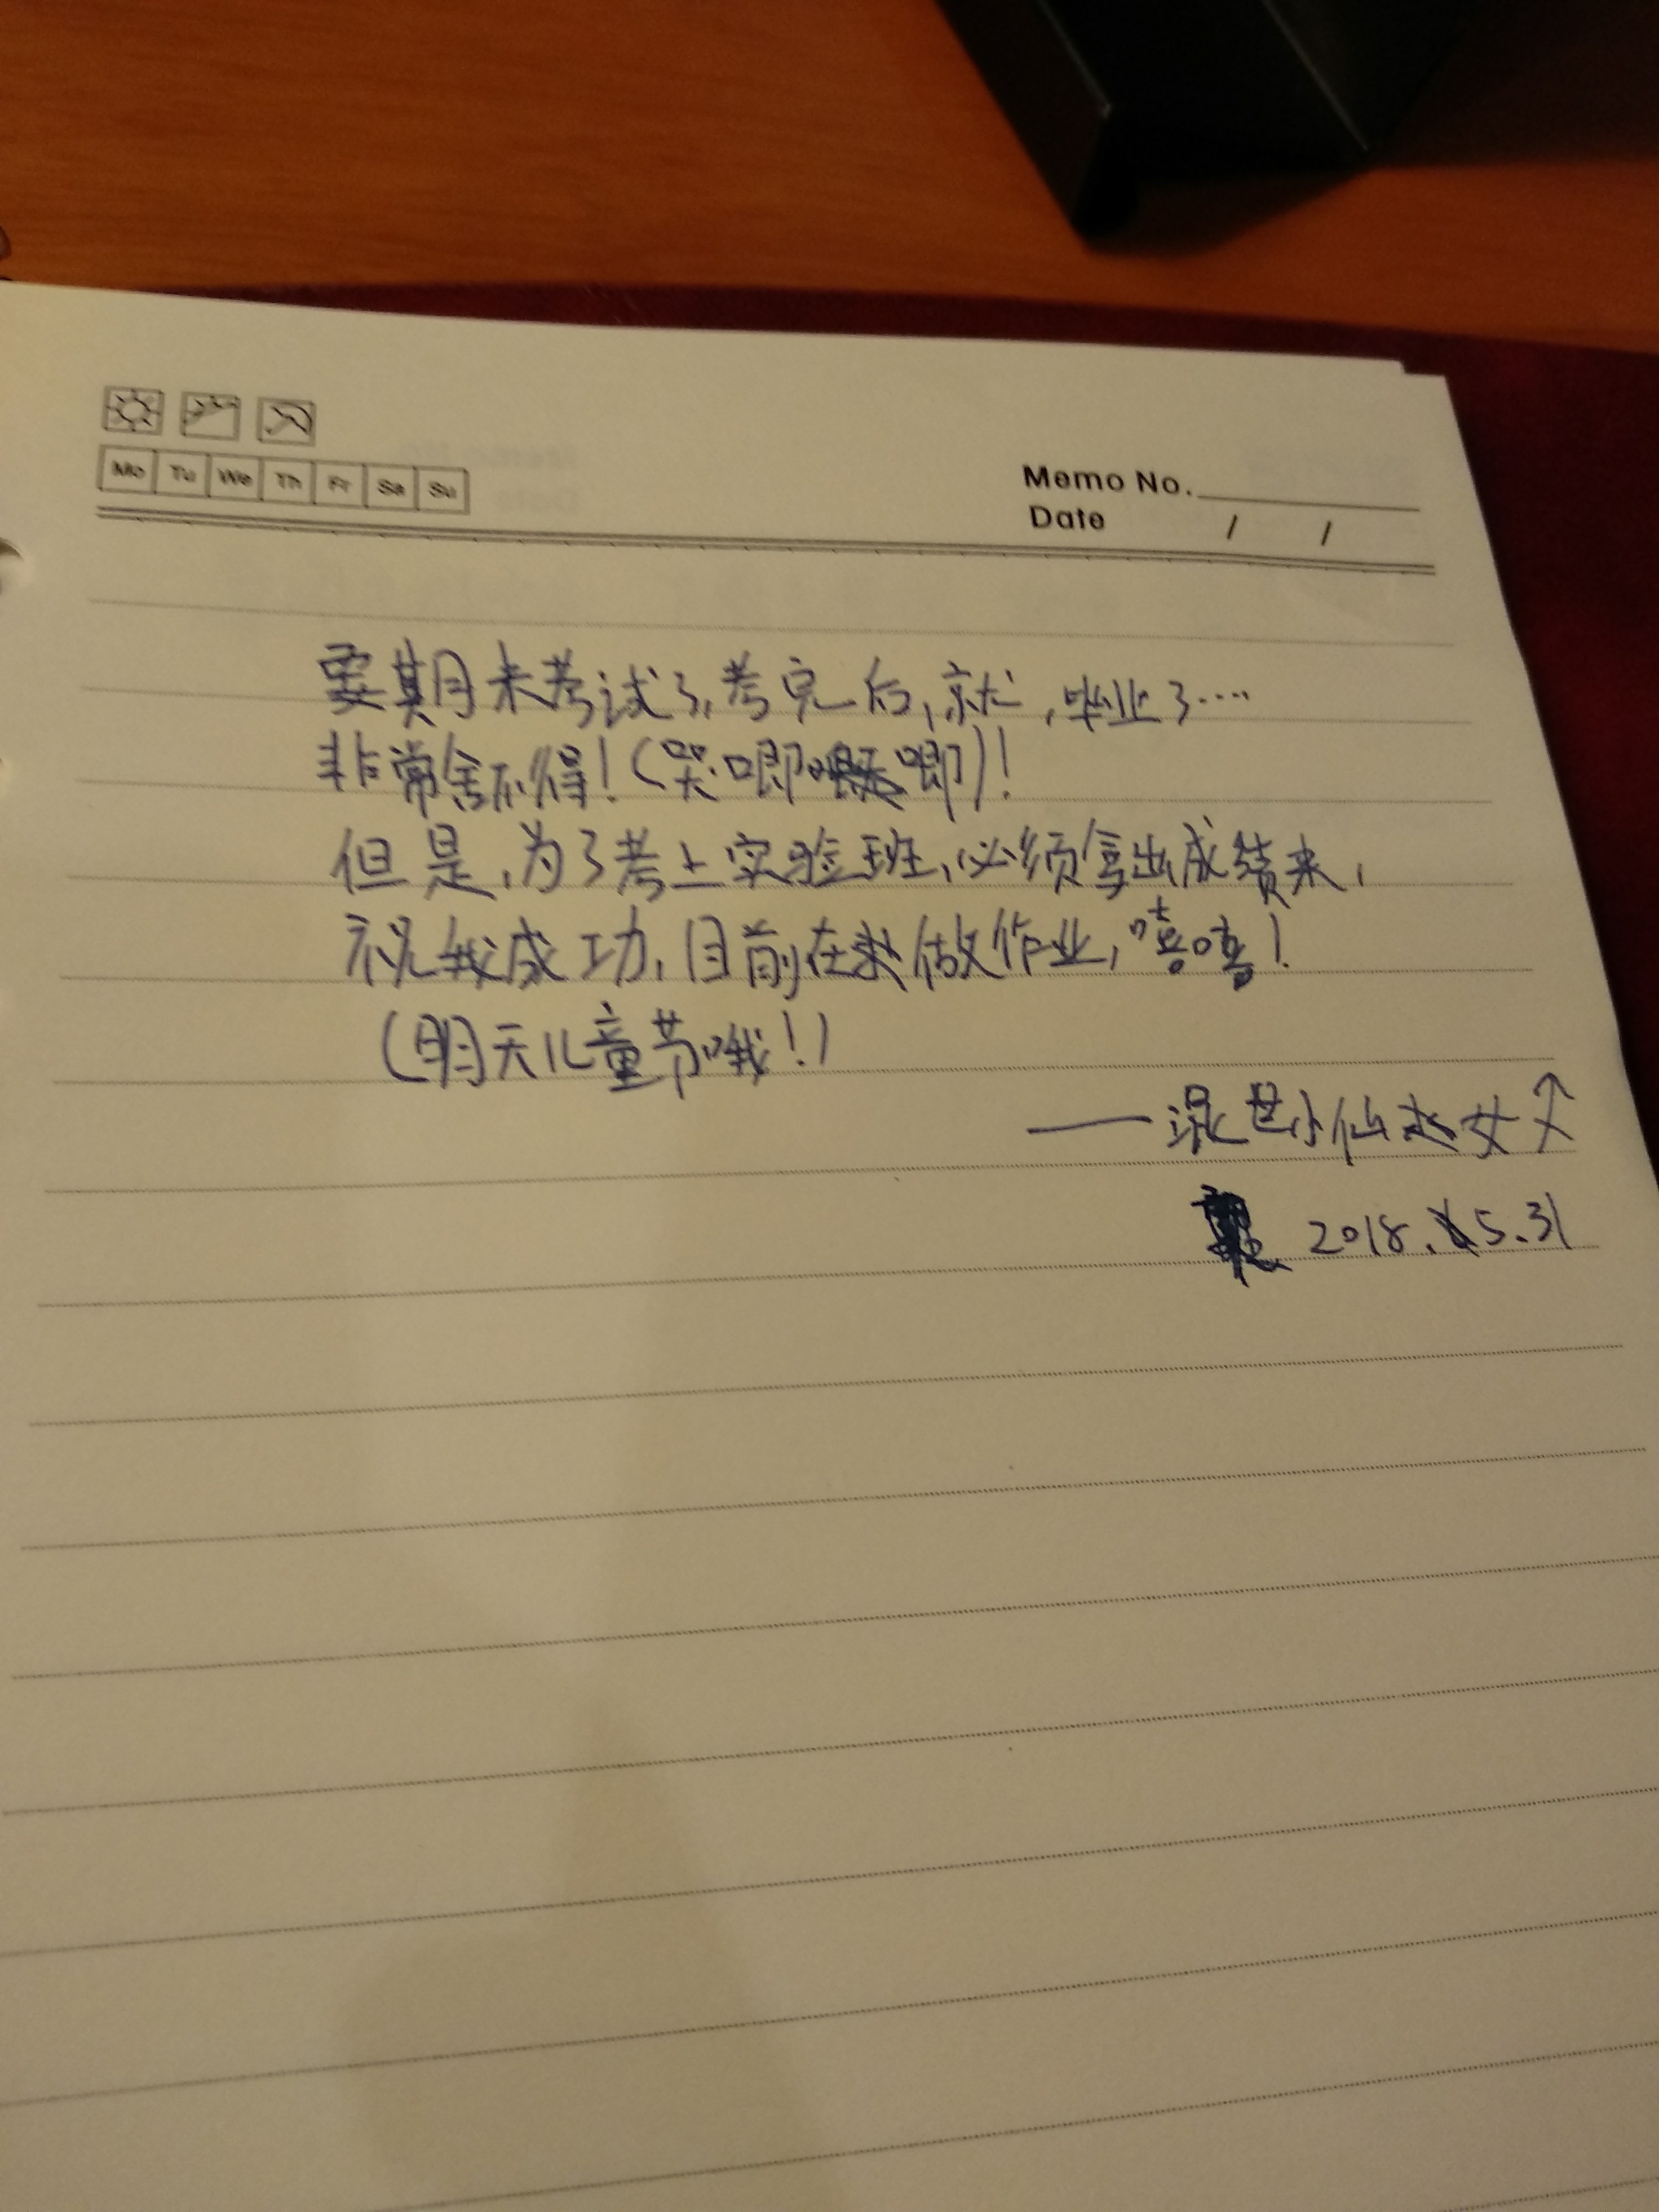 Mo Tu We Th Fr Sa Su
Memo No.
Date / /
要期末考试了,考完后,就,毕业了....
非常舍不得!(哭.唧唧)!
但是,为了考上实验班,必须拿出成绩来,
祝我成功,目前在做作业,嘻嘻!
(明天儿童节哦!)
——混世小仙女
2018.5.31